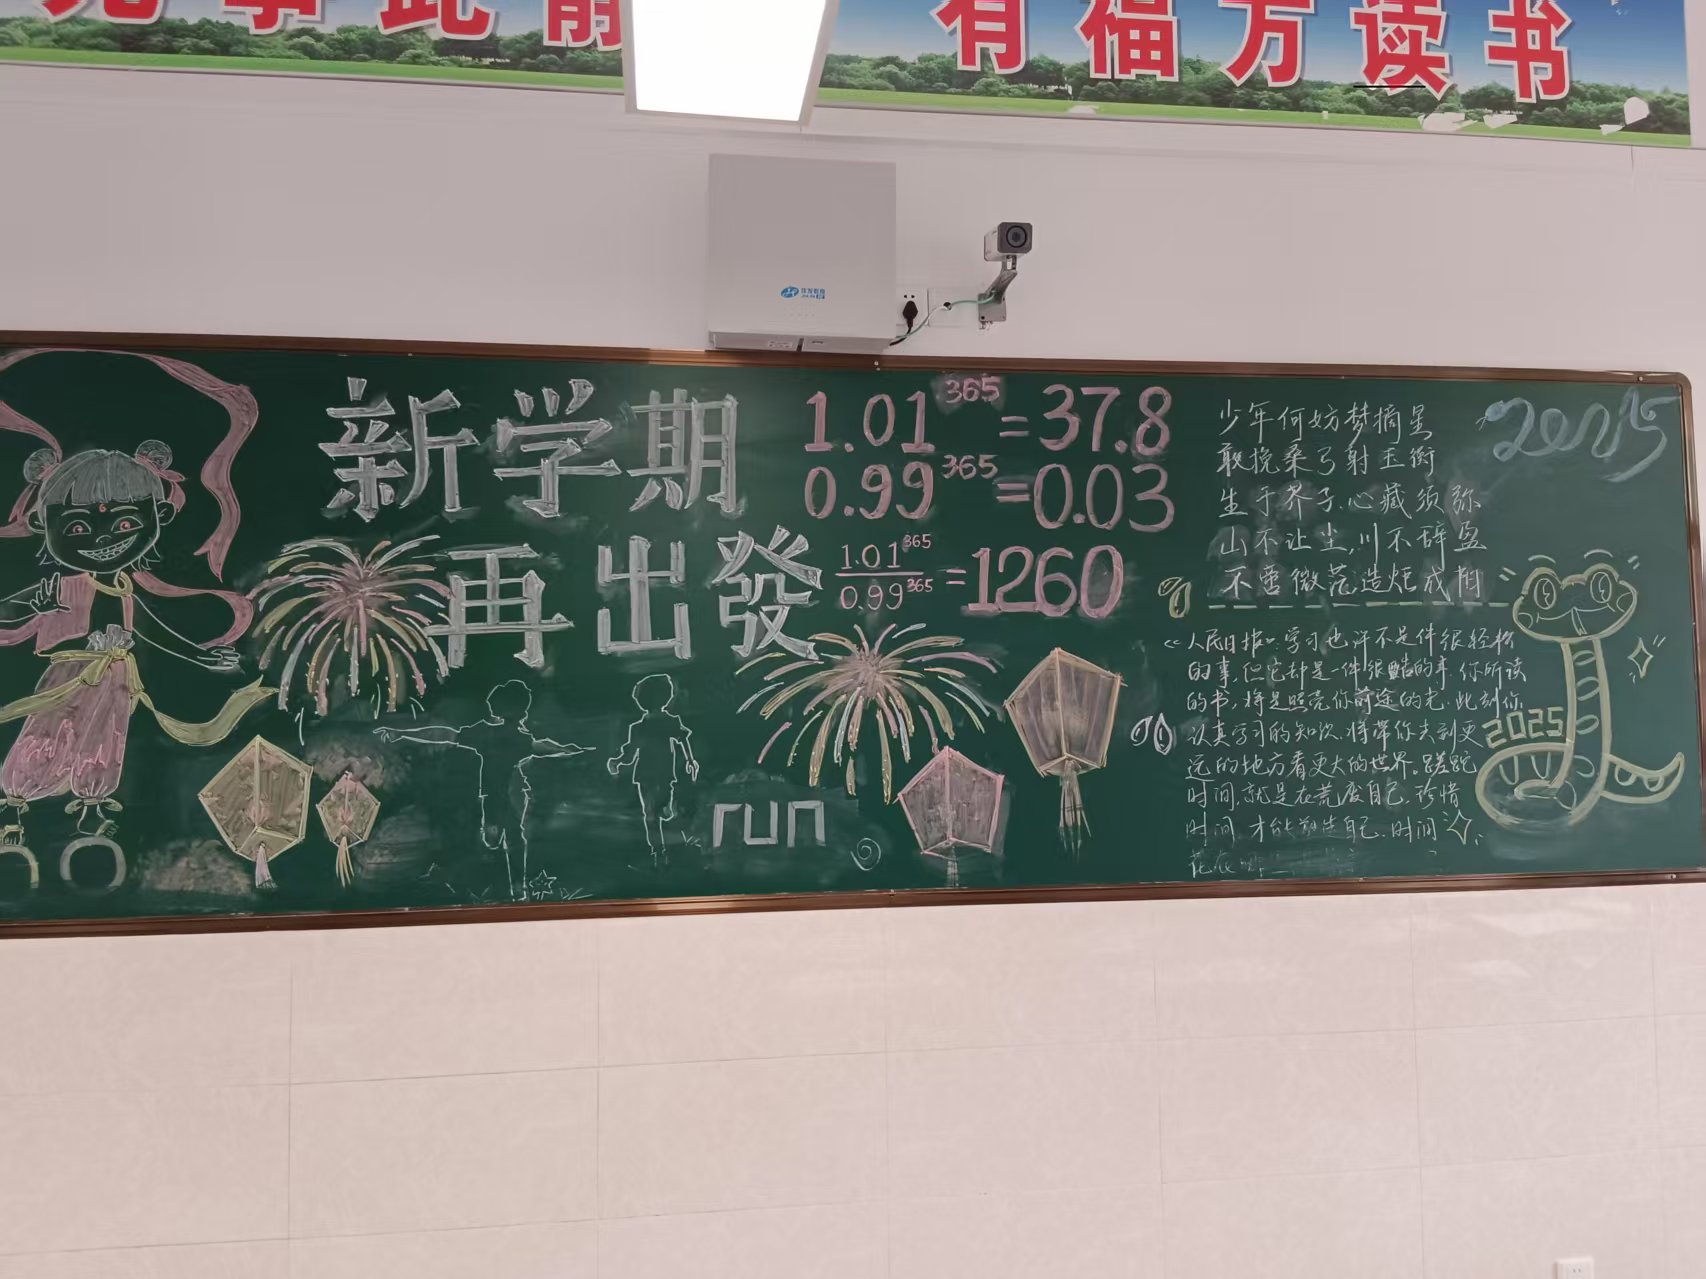 有福方读书
新学期
再出發
1.01³⁶⁵=37.8
0.99³⁶⁵=0.03
1.01³⁶⁵/0.99³⁶⁵=1260
run
少年何妨梦摘星
敢挽桑弓射玉衡
生于芥子,心藏须弥
山不让尘,川不辞盈
不啻微茫,造炬成阳
2025
《人民日报》:学习也许不是件很轻松
的事,但它却是一件很酷的事.你所读
的书,将是照亮你前途的光.此刻你
认真学习的知识,将带你去到更
远的地方看更大的世界。蹉跎
时间,就是在荒废自己,珍惜
时间,才能塑造自己.时间
花在哪
2025